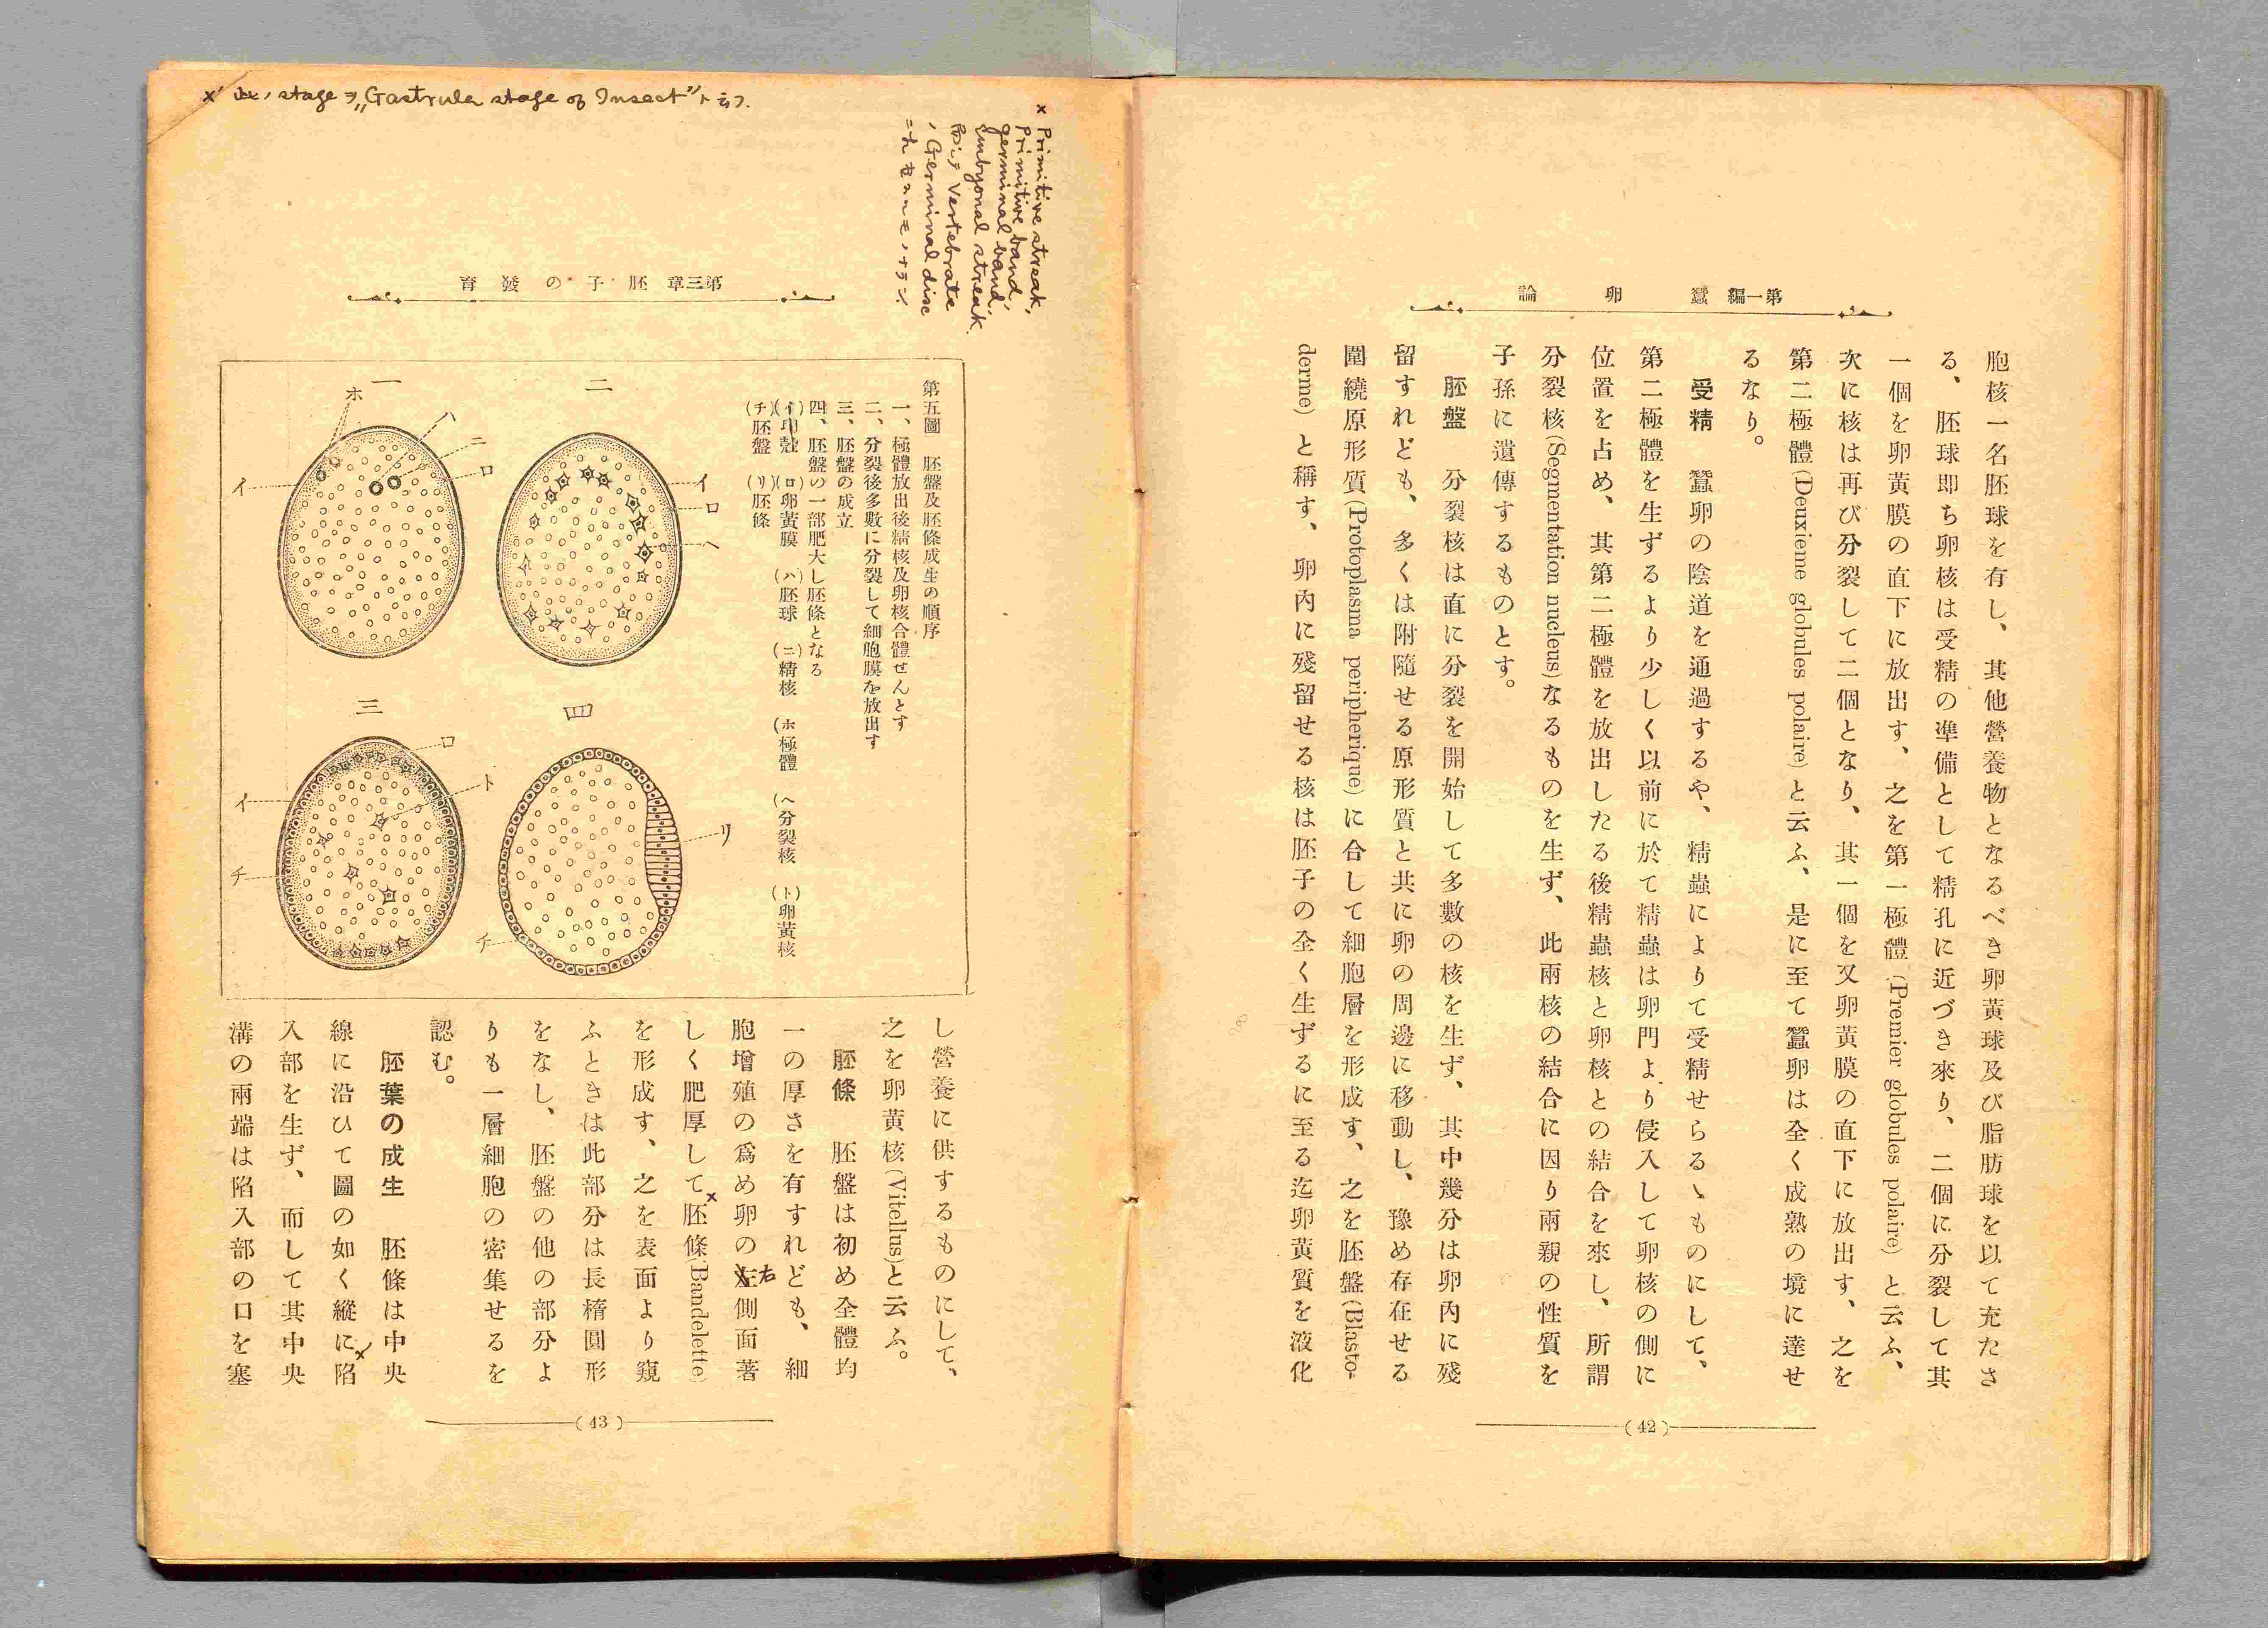 第一編　蠶　卵　論
胞核一名胚球を有し、其他營養物となるべき卵黃球及び脂肪球を以て充たさ
る、胚球即ち卵核は受精の準備として精孔に近づき來り、二個に分裂して其
一個を卵黃膜の直下に放出す、之を第一極體(Premier globules polaire)と云ふ、
次に核は再び分裂して二個となり、其一個を又卵黃膜の直下に放出す、之を
第二極體(Deuxieme globules polaire)と云ふ、是に至て蠶卵は全く成熟の境に達せ
るなり。
受精　蠶卵の陰道を通過するや、精蟲によりて受精せらるヽものにして、
第二極體を生ずるより少しく以前に於て精蟲は卵門より侵入して卵核の側に
位置を占め、其第二極體を放出したる後精蟲核と卵核との結合を來し、所謂
分裂核(Segmentation nucleus)なるものを生ず、此兩核の結合に因り兩親の性質を
子孫に遺傳するものとす。
胚盤　分裂核は直に分裂を開始して多數の核を生ず、其中幾分は卵內に殘
留すれども、多くは附隨せる原形質と共に卵の周邊に移動し、豫め存在せる
圍繞原形質(Protoplasma peripherique)に合して細胞層を形成す、之を胚盤(Blasto-
derme)と稱す、卵內に殘留せる核は胚子の全く生ずるに至る迄卵黃質を液化
(42)
x' 此ノ stage ヲ „Gastrula stage of Insect" ト云フ.
x Primitive streak,
Primitive band,
germinal band,
embyonal streak.
Vertebrate
ノ Germinal disc
第三章　胚子の發育
第五圖　胚盤及胚條成生の順序
一、極體放出後精核及卵核合體せんとす
二、分裂後多數に分裂して細胞膜を放出す
三、胚盤の成立
四、胚盤の一部肥大し胚條となる
(イ)卵殼　(ロ)卵黃膜　(ハ)胚球　(ニ)精核　(ホ)極體　(ヘ)分裂核　(ト)卵黃核
(チ)胚盤　(リ)胚條
二
イ
ロ
ヘ
一
ホ
ハ
ニ
ロ
イ
四
リ
チ
三
ロ
ト
イ
チ
し營養に供するものにして、
之を卵黃核(Vitellus)と云ふ。
胚條　胚盤は初め全體均
一の厚さを有すれども、細
胞增殖の爲め卵の左右側面著
しく肥厚して×胚條(Bandelette)
を形成す、之を表面より窺
ふときは此部分は長橢圓形
をなし、胚盤の他の部分よ
りも一層細胞の密集せるを
認む。
胚葉の成生　胚條は中央
線に沿ひて圖の如く縱に×'陷
入部を生ず、而して其中央
溝の兩端は陷入部の口を塞
(43)